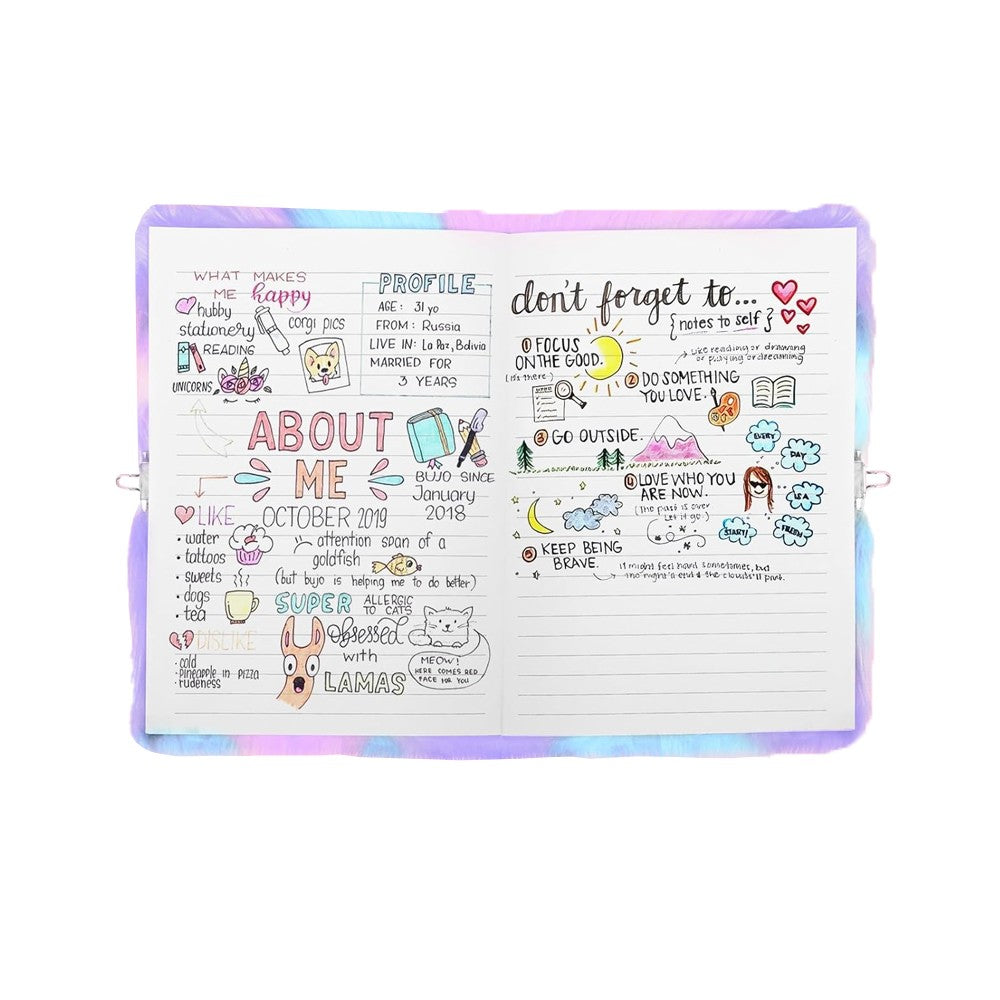 WHAT MAKES
ME happy
hubby
stationery
corgi pics
READING
UNICORNS
PROFILE
AGE: 31 yo
FROM: Russia
LIVE IN: La Paz, Bolivia
MARRIED FOR
3 YEARS
ABOUT
ME
BUJO SINCE
January
2018
LIKE
OCTOBER 2019
• water
• tattoos
• sweets
• dogs
• tea
attention span of a
goldfish
(but bujo is helping me to do better)
SUPER ALLERGIC
TO CATS
DISLIKE
• cold
• pineapple in pizza
• rudeness
obsessed
with
LAMAS
MEOW!
HERE COMES RED
FACE FOR YOU
don't forget to...
{notes to self}
① FOCUS
ON THE GOOD.
(it's there)
② DO SOMETHING
YOU LOVE.
like reading or drawing
or playing or dreaming
③ GO OUTSIDE.
④ LOVE WHO YOU
ARE NOW.
(The past is over
Let it go.)
EVERY
DAY
IS A
FRESH
START!
⑤ KEEP BEING
BRAVE.
it might feel hard sometimes, but
the clouds'll part.